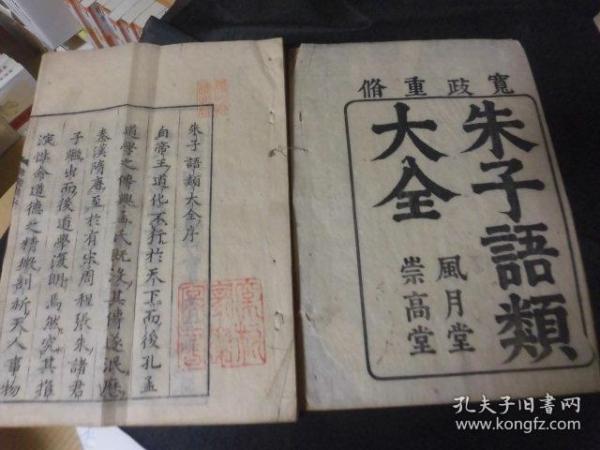 寬政重脩
朱子語類
大全
風月堂
崇高堂
朱子語類大全序
自帝王道化不行於天下而後孔孟
道學之傳興孟氏既沒其傳遂泯歷
秦漢隋唐至於有宋周程張朱諸君
子輩出而後道學復明焉然究其推
性命道德之精微剖析天人事物
孔夫子旧书网
www.kongfz.com